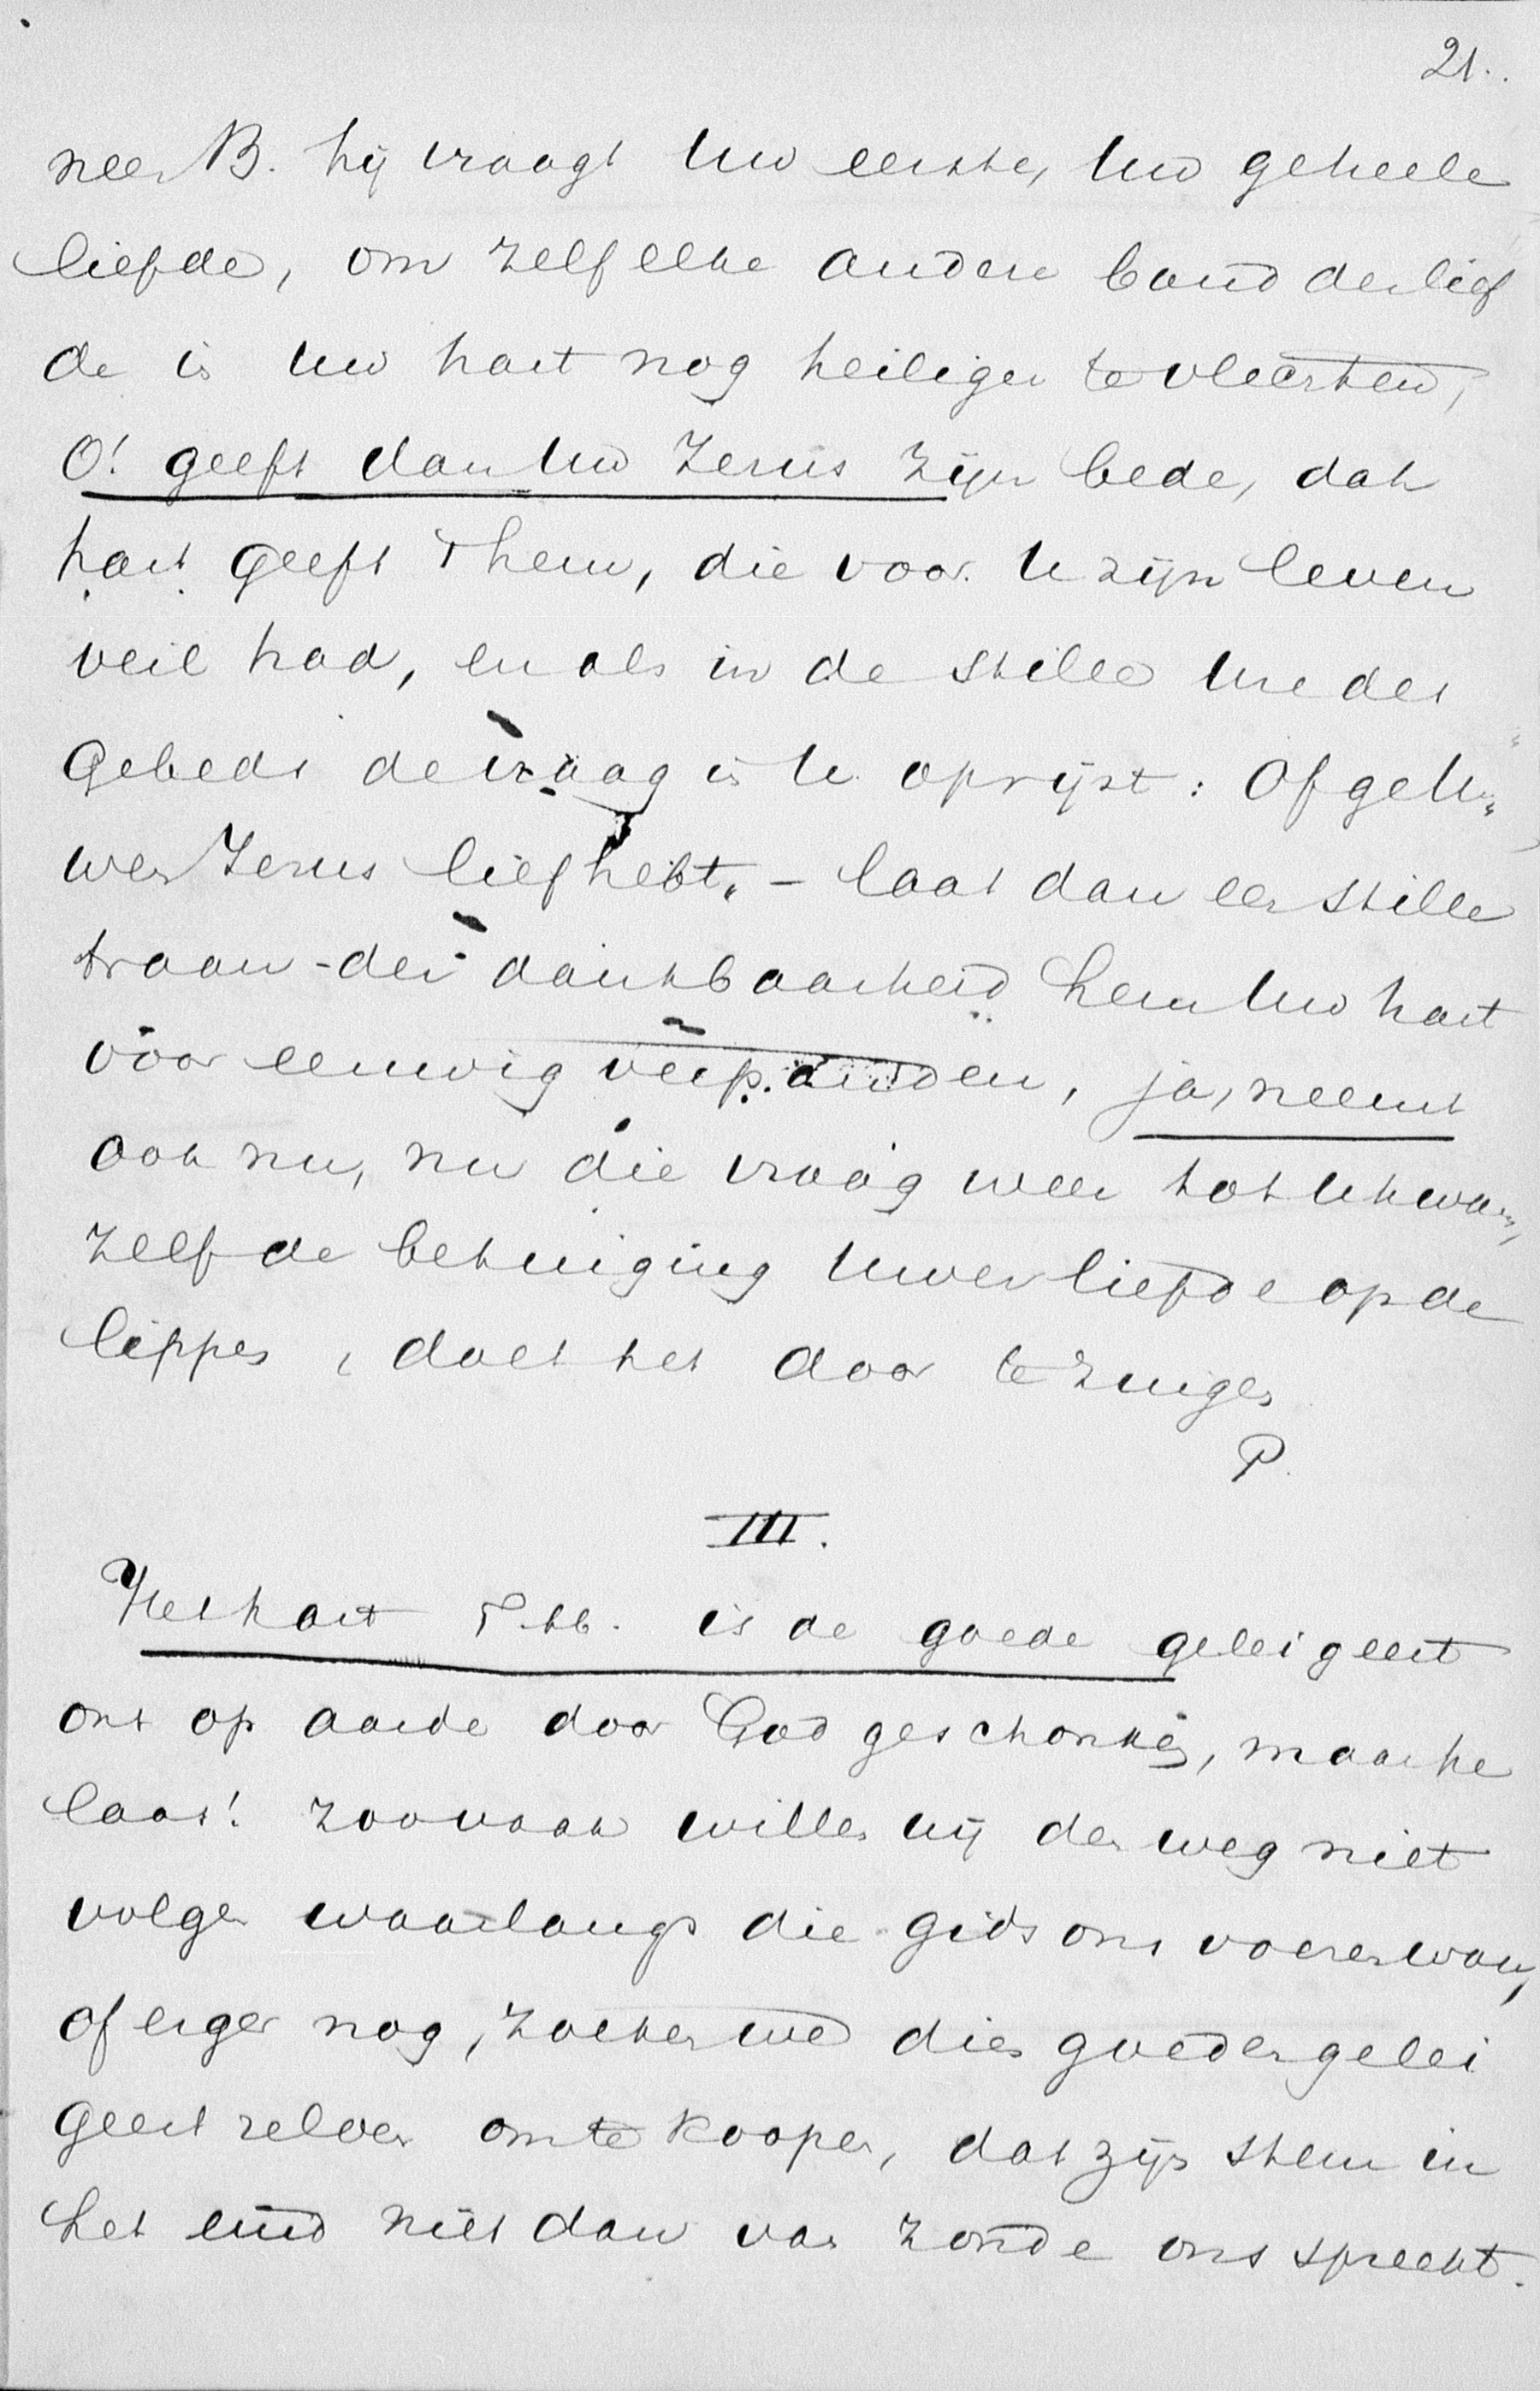 21.
neen B. hij vraagt Uw eerste, Uw geheele
liefde, om zelf elke andere band der lief
de in Uw hart nog heiliger te vlechten,
O! geeft dan Uw Jezus zijn bede, dat
hart geeft 't hem, die voor U zijn leven
veil had, en als in de stille Ure des
Gebeds de vraag in U oprijst: Of ge U„
wen Jezus liefhebt, - laat dan een stille
traan der dankbaarheid hem Uw hart
voor eeuwig verpanden, ja, neemt
ook nu, nu die vraag weer tot U kwam,
zelf de betuiging Uwer liefde op de
lippen, doet het door te zingen
P.
III.
Het hart T. hb. is de goede geleigeest
ons op aarde door God geschonken, maar he
laas! zoo vaak willen wij den weg niet
volgen waarlangs die gids ons voeren wou,
of erger nog, zoeken we dien goeden gelei
geest zelven om te koopen, dat zijn stem in
het eind niet dan van zonde ons spreekt.